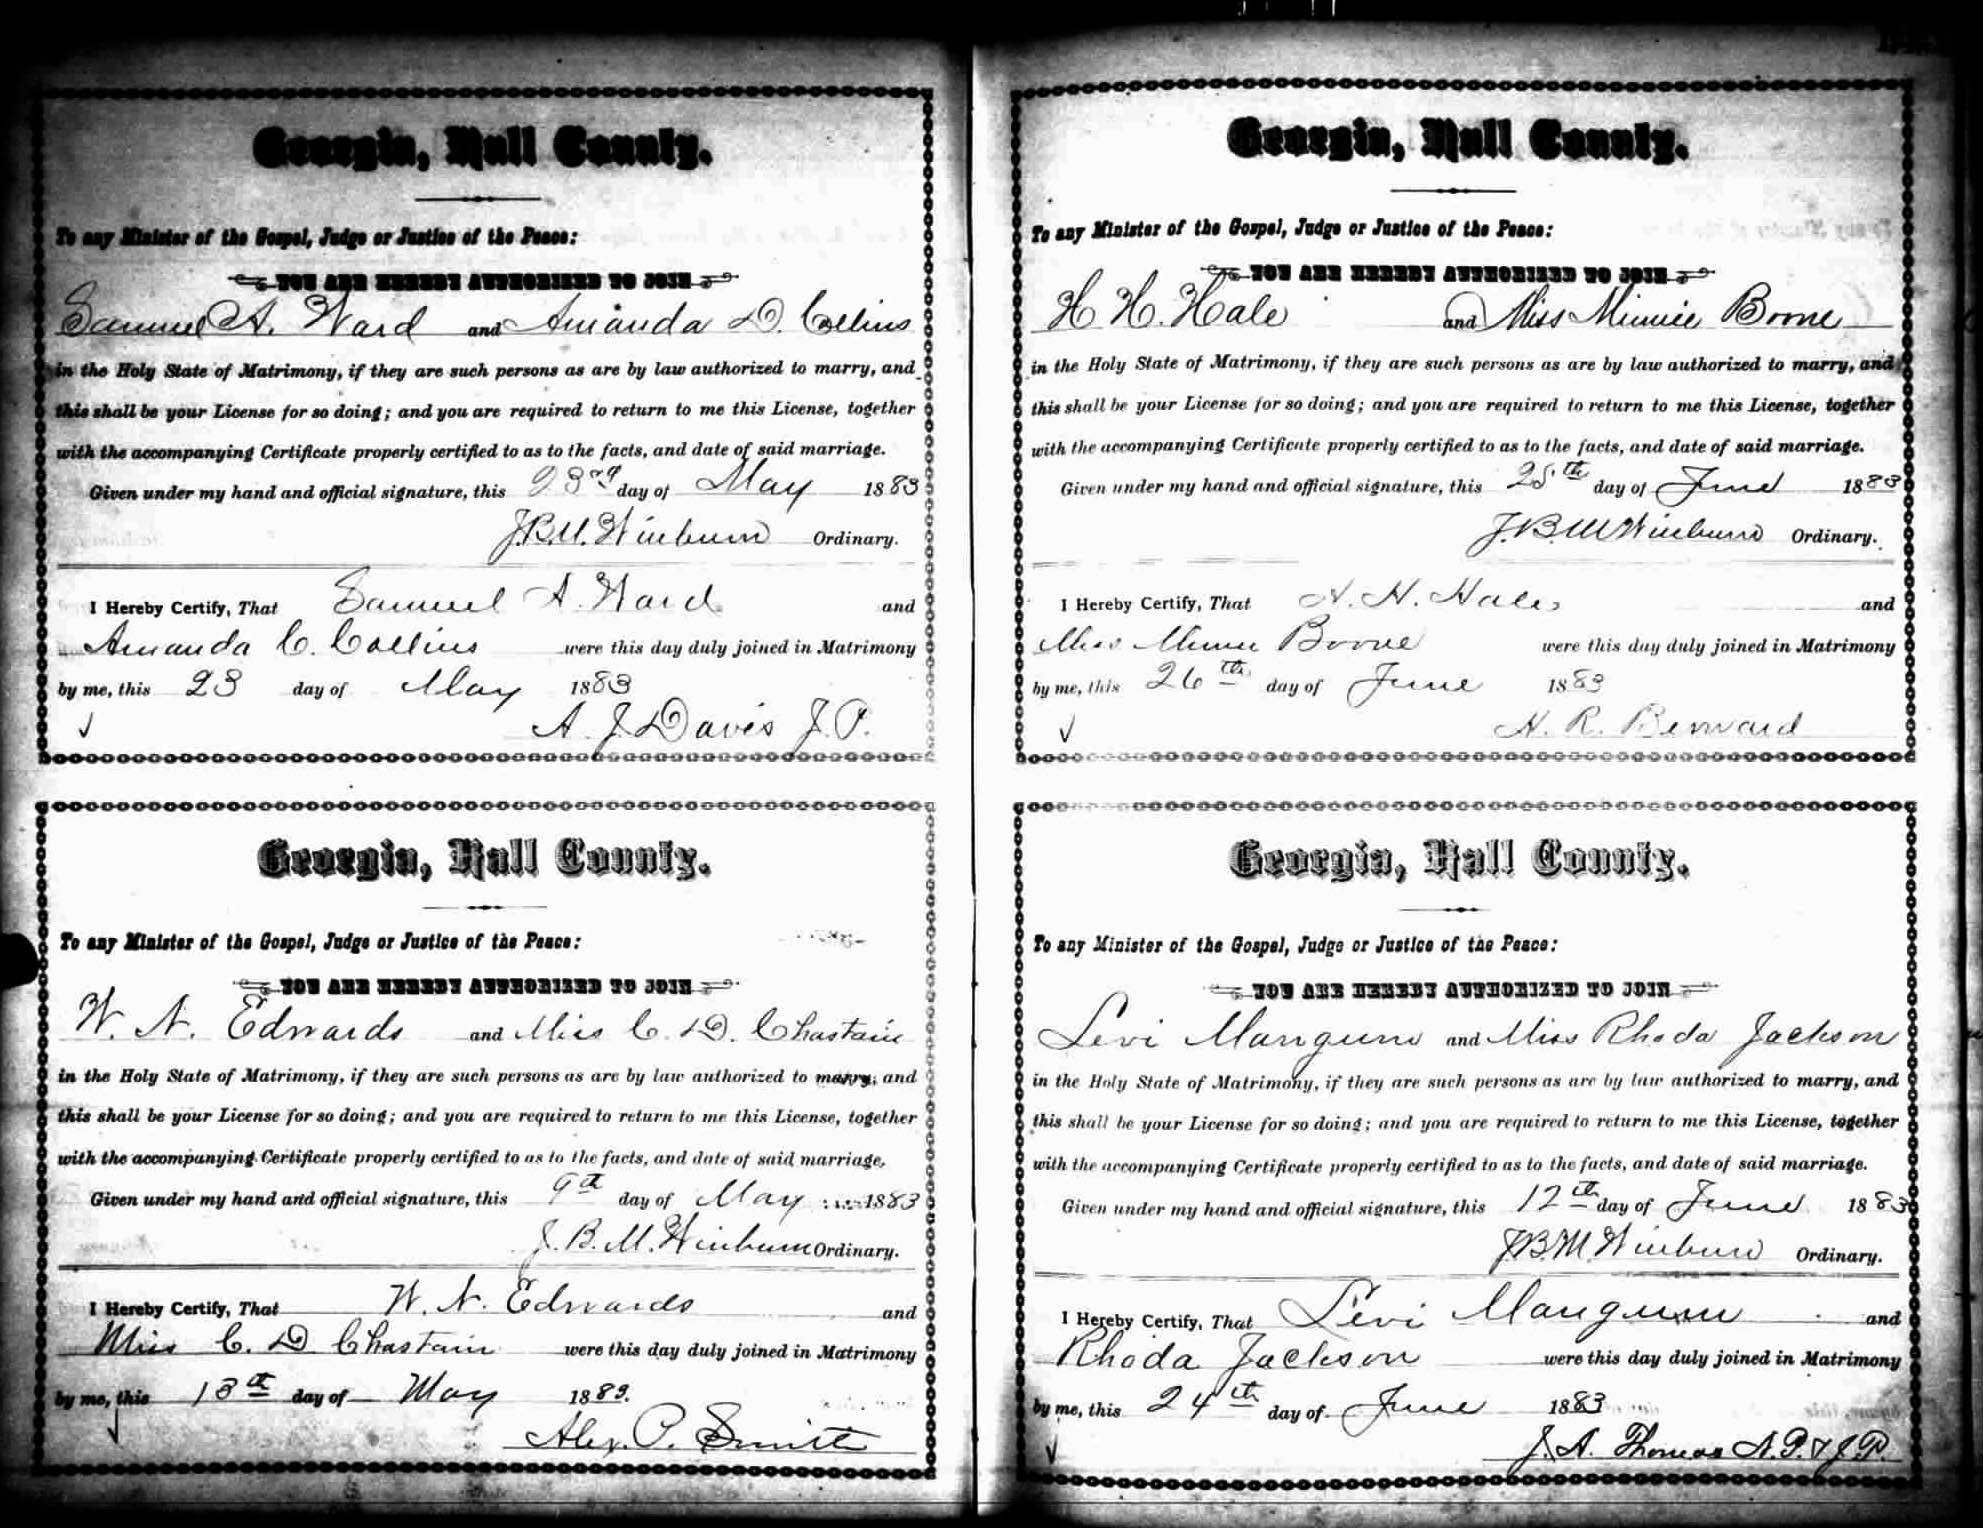 Georgia, Hall County.
To any Minister of the Gospel, Judge or Justice of the Peace:
YOU ARE HEREBY AUTHORIZED TO JOIN
Samuel A. Ward and Amanda D. Collins
in the Holy State of Matrimony, if they are such persons as are by law authorized to marry, and
this shall be your License for so doing; and you are required to return to me this License, together
with the accompanying Certificate properly certified to as to the facts, and date of said marriage.
Given under my hand and official signature, this 23rd day of May 1883
J.B.M. Winburn Ordinary.
I Hereby Certify, That Samuel A. Ward and
Amanda C. Collins were this day duly joined in Matrimony
by me, this 23 day of May 1883
A. J. Davis J. P.
Georgia, Hall County.
To any Minister of the Gospel, Judge or Justice of the Peace:
YOU ARE HEREBY AUTHORIZED TO JOIN
W. N. Edwards and Miss C. D. Chastain
in the Holy State of Matrimony, if they are such persons as are by law authorized to marry, and
this shall be your License for so doing; and you are required to return to me this License, together
with the accompanying Certificate properly certified to as to the facts, and date of said marriage.
Given under my hand and official signature, this 9th day of May 1883
J. B. M. Winburn Ordinary.
I Hereby Certify, That W. N. Edwards and
Miss C. D Chastain were this day duly joined in Matrimony
by me, this 13th day of May 1883.
Alex. P. Smith
Georgia, Hall County.
To any Minister of the Gospel, Judge or Justice of the Peace:
YOU ARE HEREBY AUTHORIZED TO JOIN
H. H. Hale and Miss Minnie Boone
in the Holy State of Matrimony, if they are such persons as are by law authorized to marry, and
this shall be your License for so doing; and you are required to return to me this License, together
with the accompanying Certificate properly certified to as to the facts, and date of said marriage.
Given under my hand and official signature, this 25th day of June 1883
J. B. M Winburn Ordinary.
I Hereby Certify, That H. H. Hale and
Miss Minnie Boone were this day duly joined in Matrimony
by me, this 26th day of June 1883
H. R. Bernard
Georgia, Hall County.
To any Minister of the Gospel, Judge or Justice of the Peace:
YOU ARE HEREBY AUTHORIZED TO JOIN
Levi Mangum and Miss Rhoda Jackson
in the Holy State of Matrimony, if they are such persons as are by law authorized to marry, and
this shall be your License for so doing; and you are required to return to me this License, together
with the accompanying Certificate properly certified to as to the facts, and date of said marriage.
Given under my hand and official signature, this 12th day of June 1883
J.B.M. Winburn Ordinary.
I Hereby Certify, That Levi Mangum and
Rhoda Jackson were this day duly joined in Matrimony
by me, this 24th day of June 1883
J. A. Thomas N.P. & J.P.